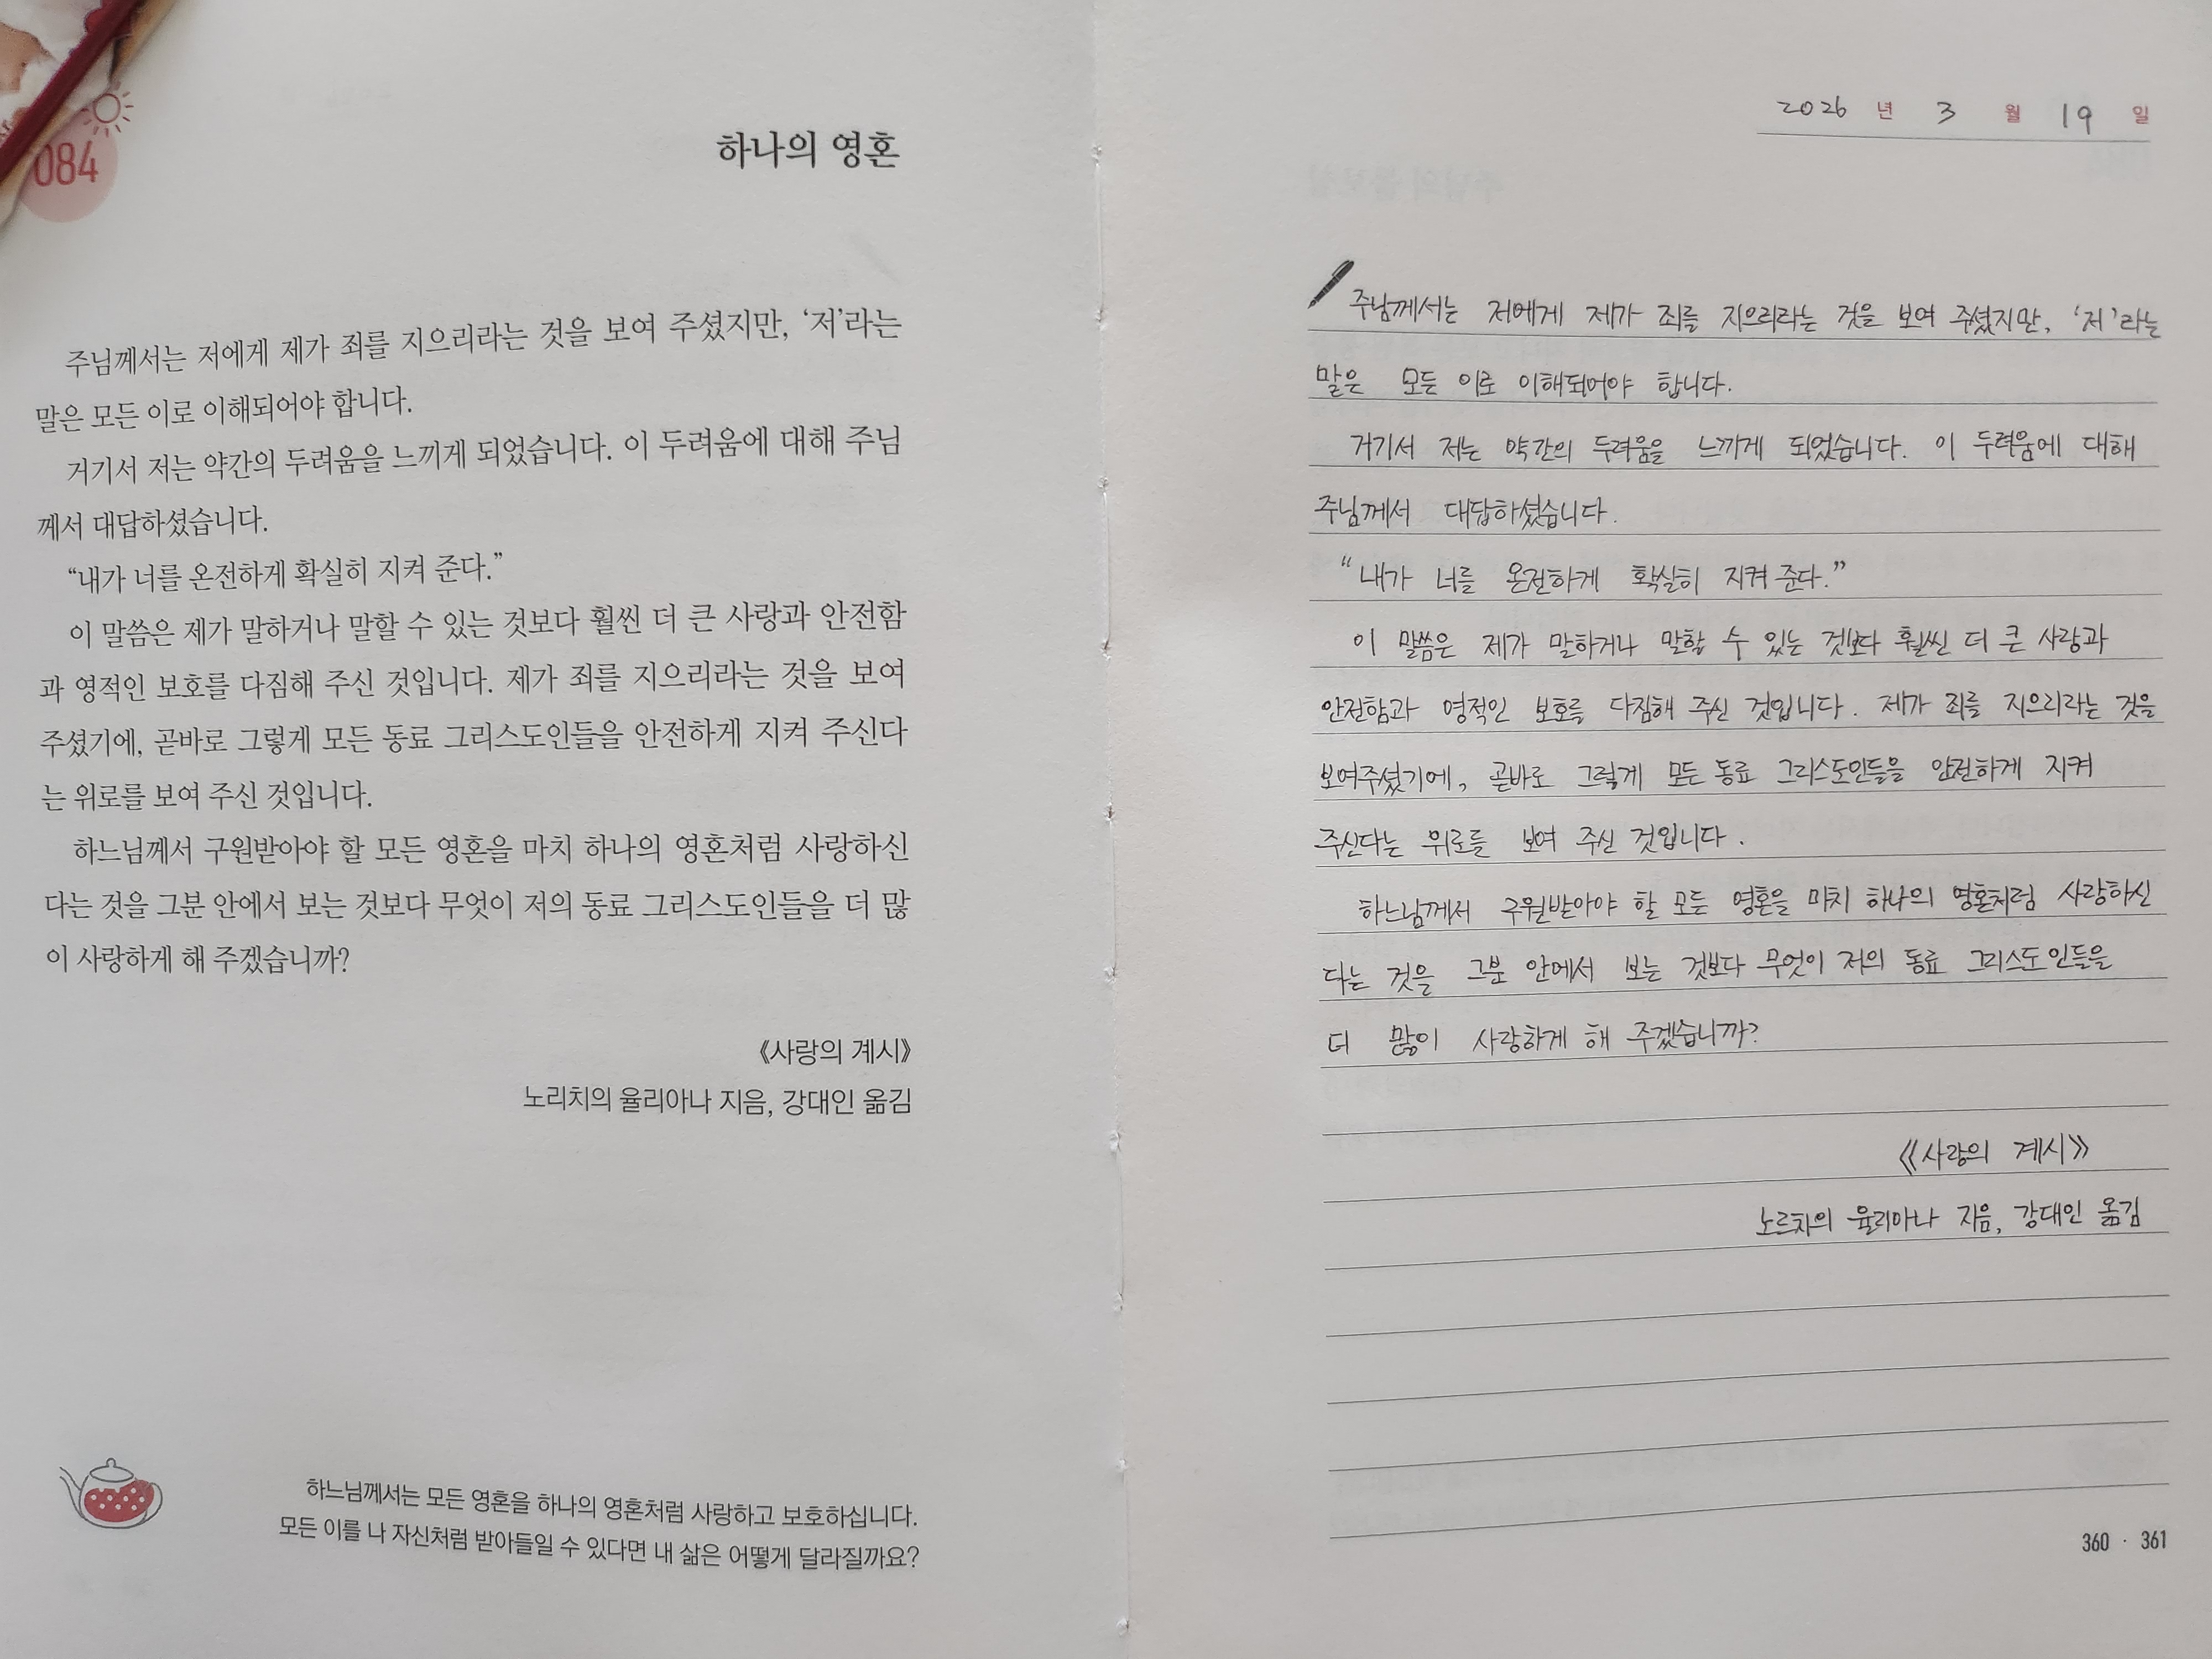 084
하나의 영혼
주님께서는 저에게 제가 죄를 지으리라는 것을 보여 주셨지만, ‘저’라는
말은 모든 이로 이해되어야 합니다.
거기서 저는 약간의 두려움을 느끼게 되었습니다. 이 두려움에 대해 주님
께서 대답하셨습니다.
“내가 너를 온전하게 확실히 지켜 준다.”
이 말씀은 제가 말하거나 말할 수 있는 것보다 훨씬 더 큰 사랑과 안전함
과 영적인 보호를 다짐해 주신 것입니다. 제가 죄를 지으리라는 것을 보여
주셨기에, 곧바로 그렇게 모든 동료 그리스도인들을 안전하게 지켜 주신다
는 위로를 보여 주신 것입니다.
하느님께서 구원받아야 할 모든 영혼을 마치 하나의 영혼처럼 사랑하신
다는 것을 그분 안에서 보는 것보다 무엇이 저의 동료 그리스도인들을 더 많
이 사랑하게 해 주겠습니까?
《사랑의 계시》
노리치의 율리아나 지음, 강대인 옮김
하느님께서는 모든 영혼을 하나의 영혼처럼 사랑하고 보호하십니다.
모든 이를 나 자신처럼 받아들일 수 있다면 내 삶은 어떻게 달라질까요?
2026 년 3 월 19 일
주님께서는 저에게 제가 죄를 지으리라는 것을 보여 주셨지만, ‘저’라는
말은 모든 이로 이해되어야 합니다.
거기서 저는 약간의 두려움을 느끼게 되었습니다. 이 두려움에 대해
주님께서 대답하셨습니다.
“내가 너를 온전하게 확실히 지켜 준다.”
이 말씀은 제가 말하거나 말할 수 있는 것보다 훨씬 더 큰 사랑과
안전함과 영적인 보호를 다짐해 주신 것입니다. 제가 죄를 지으리라는 것을
보여주셨기에, 곧바로 그렇게 모든 동료 그리스도인들을 안전하게 지켜
주신다는 위로를 보여 주신 것입니다.
하느님께서 구원받아야 할 모든 영혼을 마치 하나의 영혼처럼 사랑하신
다는 것을 그분 안에서 보는 것보다 무엇이 저의 동료 그리스도인들을
더 많이 사랑하게 해 주겠습니까?
《사랑의 계시》
노르치의 율리아나 지음, 강대인 옮김
360 · 361